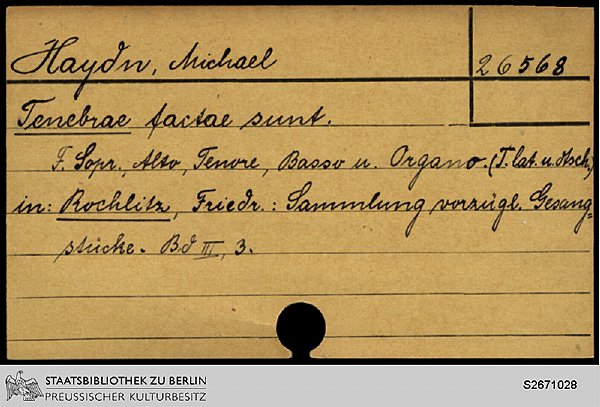 Haydn, Michael
26568
Tenebrae factae sunt.
F. Sopr., Alto, Tenore, Basso u. Organo. (T. lat. u. dtsch.)
in: Rochlitz, Friedr.: Sammlung vorzügl. Gesang=
stücke. Bd III, 3.
STAATSBIBLIOTHEK ZU BERLIN
PREUSSISCHER KULTURBESITZ
S2671028